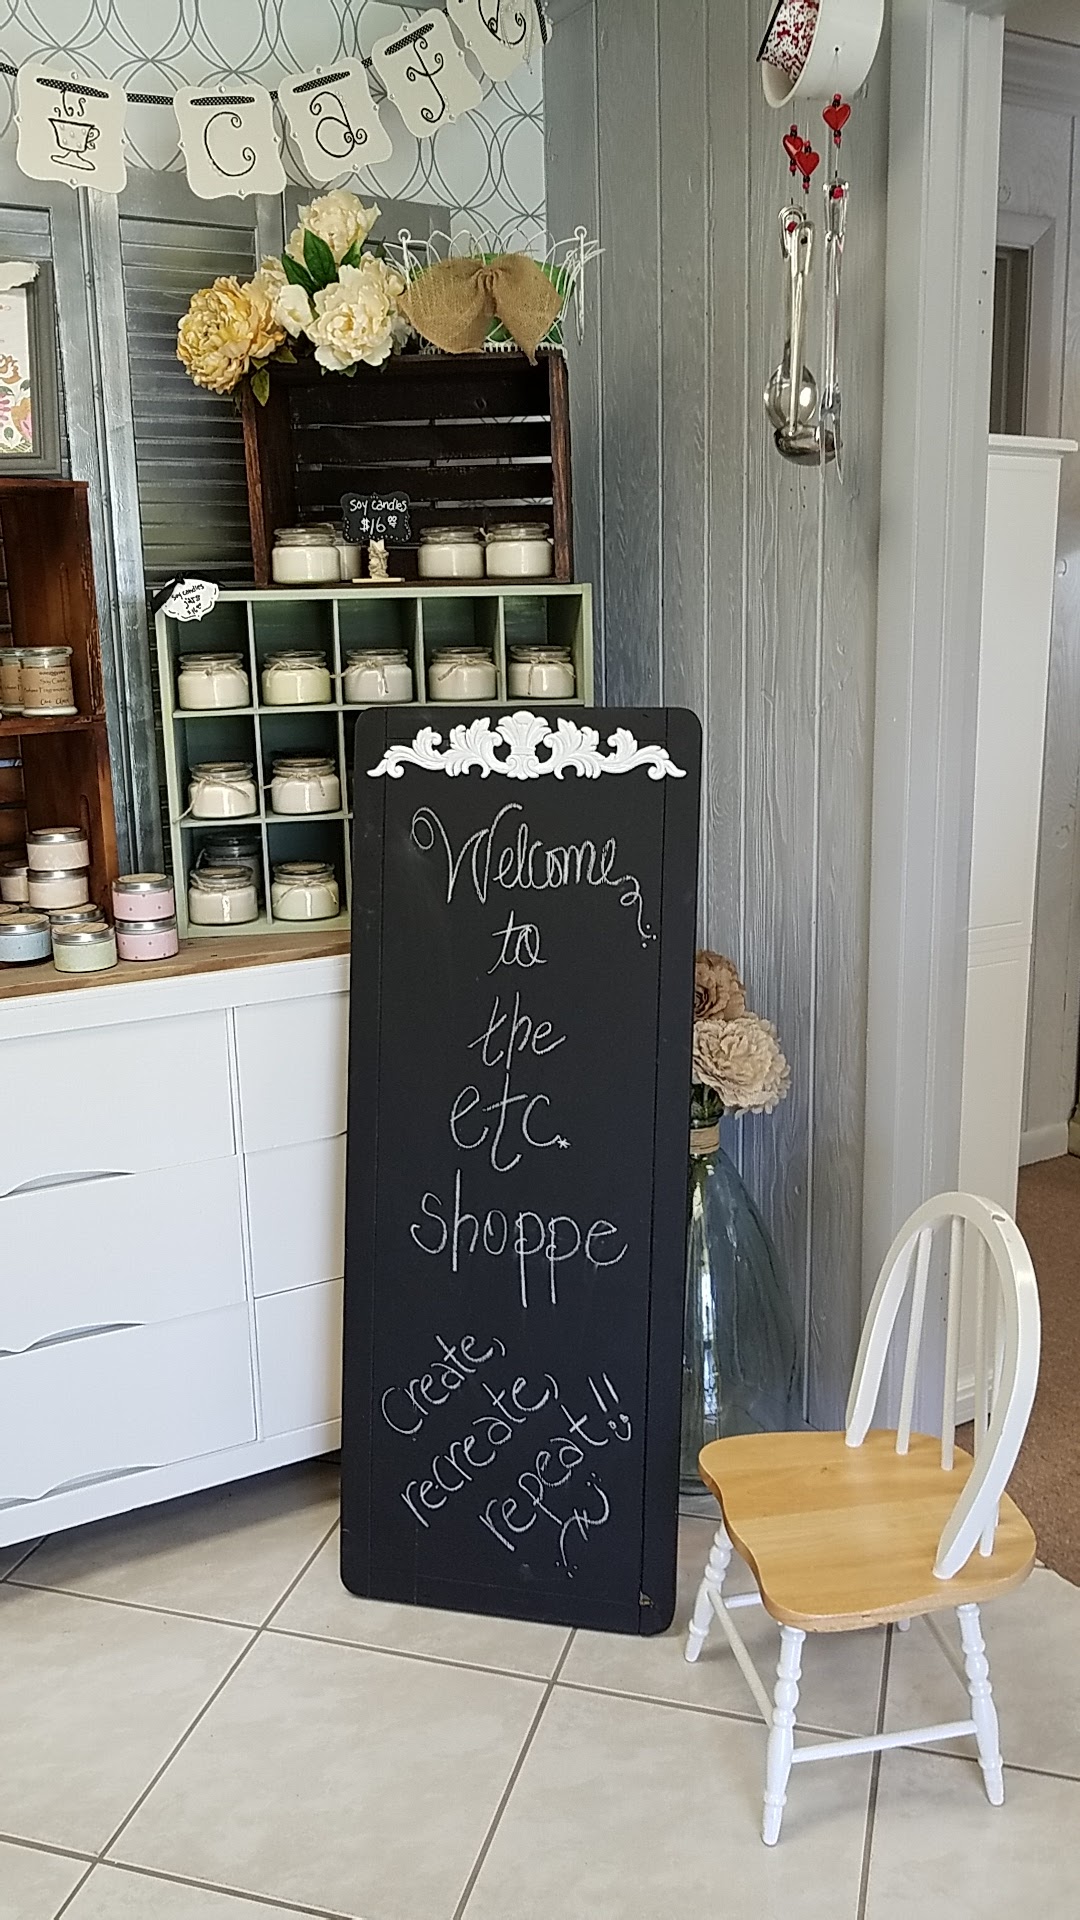 c a f e
soy candles
$16.00
soy candles
jars
Soy Candle
Welcome
to
the
etc.
shoppe
Create,
recreate,
repeat!!